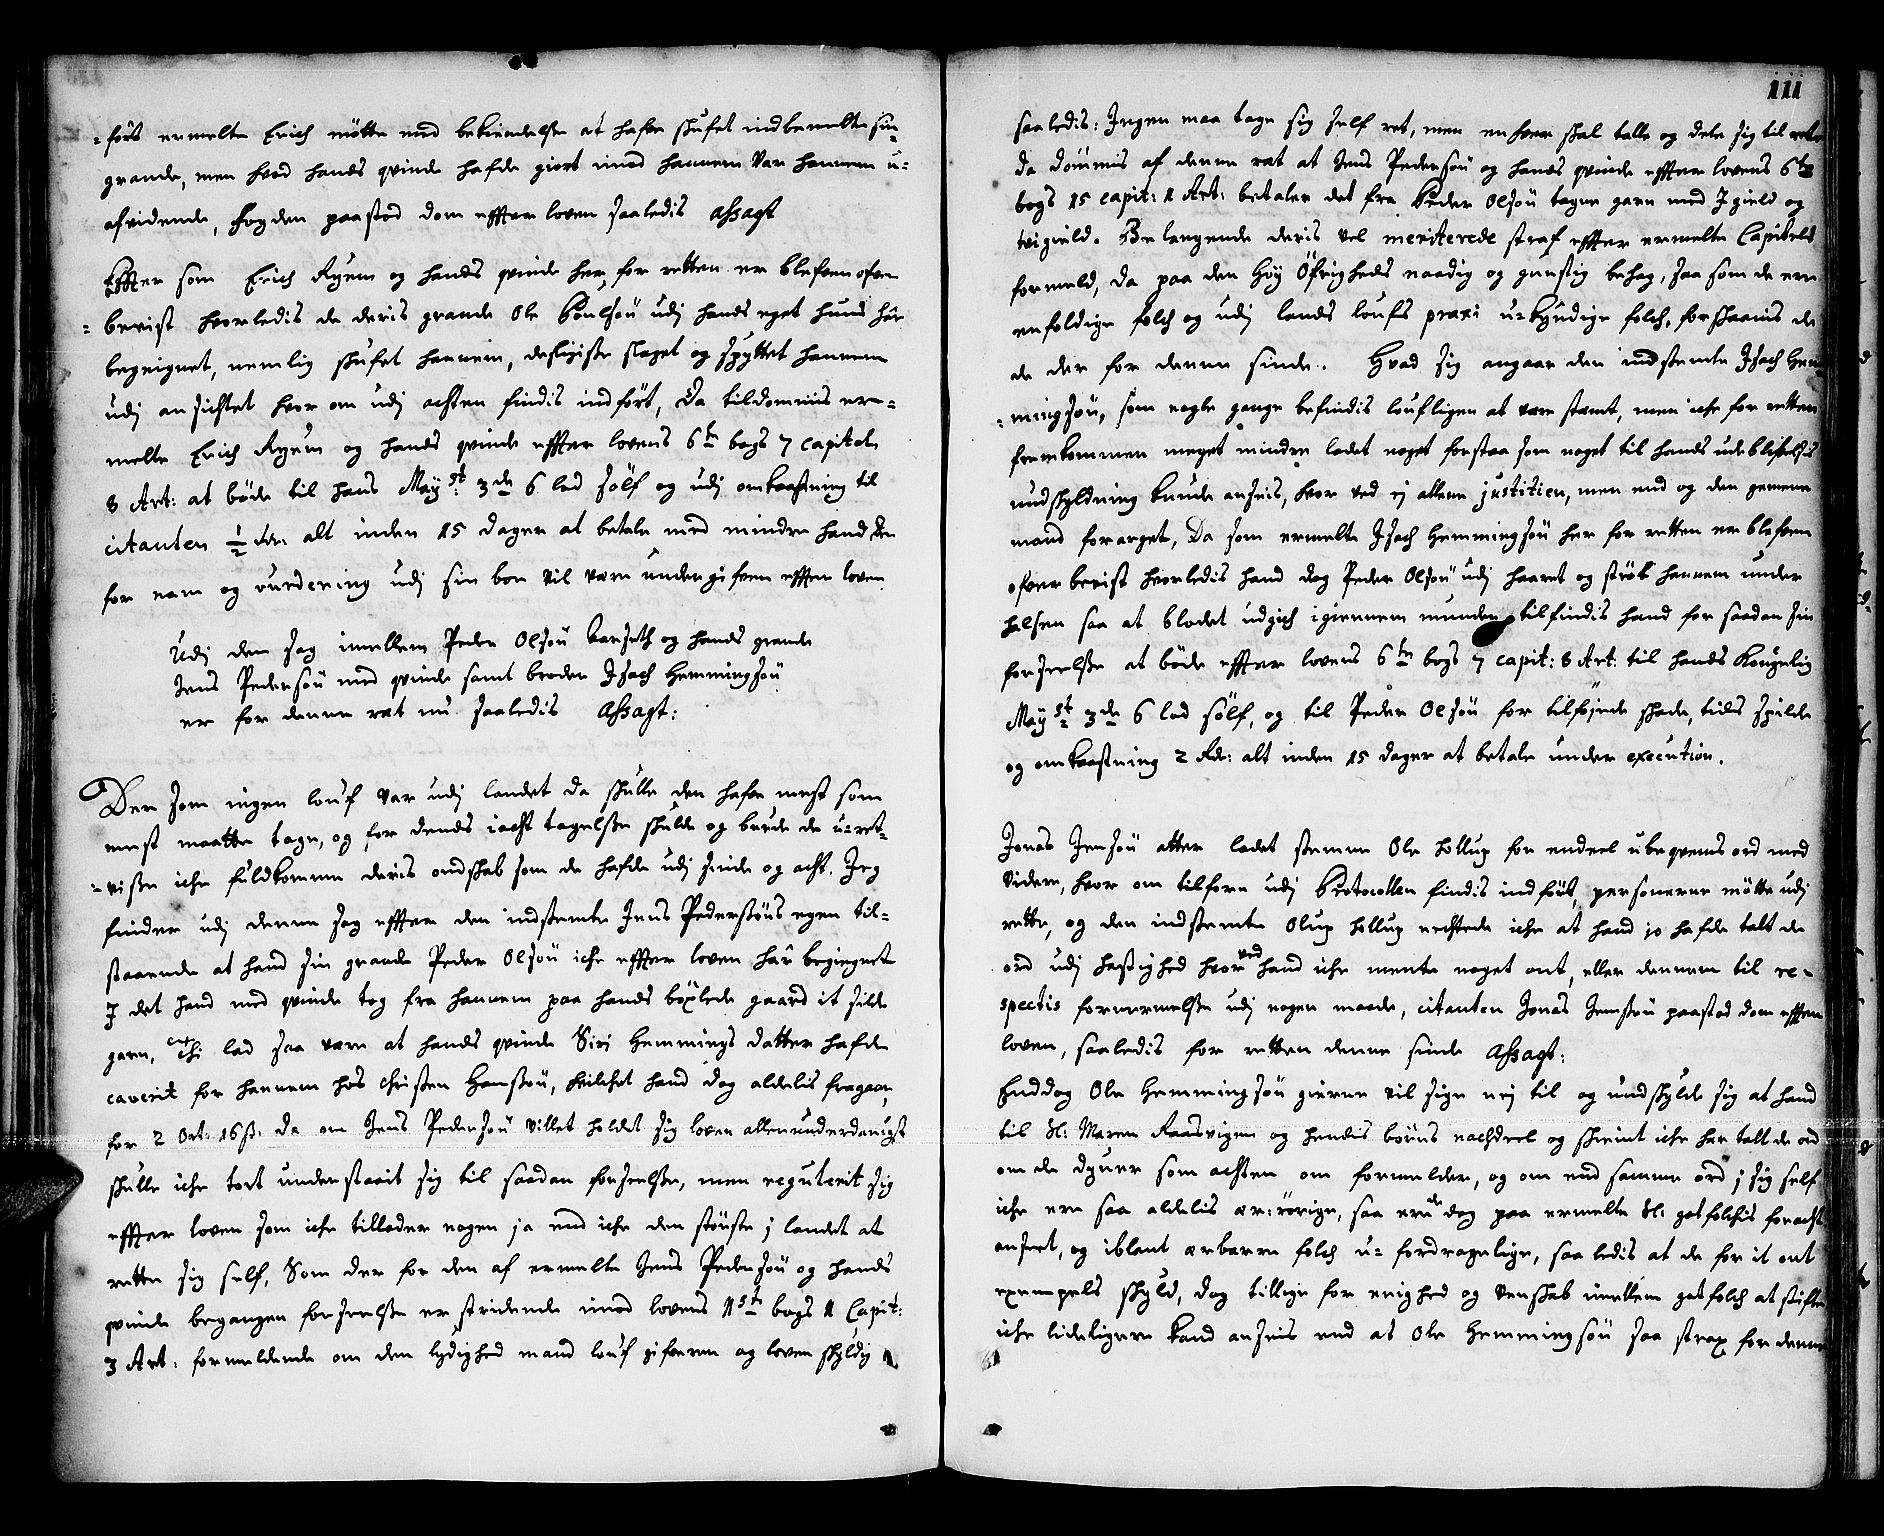 -ført ermelte Erich møtte med bekiendelsse at hafve skufet indbemelte sin
grande, men hvad hands qvinde hafde giort imod hannem var hannem u-
afvidende, Fogden paastod dom effter loven saaledis Afsagt
Effter som Erich Ryum og hands qvinde her for retten er blefven ofver
-bevist hvorledis de deris grande Ole Povlsøn udj hands eget huus har
begeignet, nemlig skufet hannem, desligisse slaget og spyttet hannem
udj ansichtet hvor om udj achten findis indført, Da tildømmis er-
melte Erich Ryum og hands qvinde effter lovens 6te bogs 7 capitel
8 Art: at bøde til hans Mayst: 3de 6 lod sølf og udj omkaastning til
citanten ½ dr. alt inden 15 dager at betale med mindre hand den
for nam og vurdering udj sin boe vil være undergifven effter loven.
Udj den sag imellem Peder Olsøn Karseth og hands grande
Jens Pedersøn med qvinde samt broder Isach Hemmingsøn
er for denne ret nu saaledis Afsagt:
Der som ingen louf var udj landet da skulle den hafve mest som
mest maatte tage, og for dends iacht tagelsse skulde og burde de u-ret-
-visse iche fuldkomme deris ondskab som de hafde udj sinde og acht. Jeg
finder udj denne sag effter den indstemte Jens Pederssøns egen til-
staaende at hand sin grande Peder Olsøn iche effter loven har begiegnet
I det hand med qvinde tog fra hannem paa hands bøxlede gaard it silde
garn, lad saa være at hands qvinde Siri Hemmings datter hafde
caverit for hannem hos Christen Hanssøn, hvilchet hand dog aldelis fragaar,
for 2 Ort: 16 s. da om Jens Pedersøn villet holdet sig loven allerunderdanigst
skulle iche tort understaait sig til saadan forseelsse, men reguterit sig
effter loven som iche tillader nogen ja end iche den støriste j landet at
rette sig self, Som der for den af ermelte Jens Pedersøn og hands
qvinde begangen forseelsse er stridende imod lovens 1st bogs 1 Capit:
3 Art: formeldende om den lydighed mand louf gifveren og loven skyldig
111
saaledis: Ingen maa tage sig self ret, men en hver skal talle og dele sig til rette
da dømmis af denne ret at Jens Pedersøn og hands qvinde effter lovens 6te
bogs 15 capit: 1 Art: betaler det fra Peder Olsøn tagne garn med Igield og
tvigield. Belangende deris vel meriterede straf effter ermelte Capitels
formeld, da paa den høy Øfrigheds naadig og gunstig behag, saa som de ere
enfoldige folch og udj lands loufs praxi u-kyndige folch, forskaanis de
de der for denne sinde. Hvad sig angaar den indstemte Isach Hem-
-mingsøn, som nogle gange befindis loufligen at være stemt, men iche for retten
fremkommen meget mindre ladet noget forstaa som noget til hands udeblifvelsis
undskyldning kunde ansees, hvor ved ej allene justitien, men end og den gemene
mand forarget, Da som ermelte Isach Hemmingsøn her for retten er blefven
ofver bevist hvorledis hand drog Peder Olsøn udj haaret og strøb hannem under
halsen saa at blodet udgich igiennem munden tilfindis hand for saadan sin
forseelsse at bøde effter lovens 6te bogs 7 capit: 8 Art: til hands Kongelig
Mayst: 3de 6 lod sølf, og til Peder Olsøn for tilføjede skade, tids spilde
og omkaastning 2 Rdr: alt inden 15 dager at betale under execution.
Jonas Jensøn atter ladet stemme Ole Hollup for endeel ubeqvems ord med
videre, hvor om tilforn udj Protocollen findis indført, personerne møtte udj
rette, og den indstemte Oluf Hollup nechtede iche at hand jo hafde talt de
ord udj hastighed hvorved hand iche mente noget ont, eller dennem til re-
spectis formermelsse udj nogen maade, citanten Jonas Jenssøn paastod dom effter
loven, saaledis for retten denne sinde Afsagt:
Enddog Ole Hemmingsøn gierne vil sige nej til og undskylde sig at hand
til Sl: Maren Raasvigen og hendis børns nachdeel og skrimt iche har talt de ord
om de dyner som achten om formelder, og om end samme ord j sig self
iche ere saa aldelis ær-rørige, saa ere de dog paa ermelte Sl: gotfolchis foracht
anseet, og iblant ærbarre folch u-fordragelige, saaledis at de for it ont
exempels skyld, dog tillige for enighed og venskab imellem gotfolch at stifte
iche lideligere kand ansees end at Ole Hemmingsøn saa strax for denne